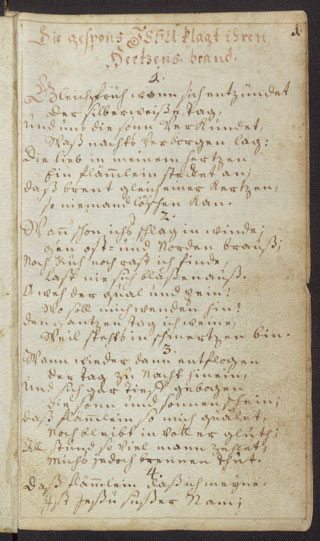 1
Die gespons JESU klagt ihren
Hertzens brand.
1.
Gleich früh wann sich entzündet
Der silberweiße tag,
Und uns die sonn verkündet,
Waß nachts verborgen lag:
Die lieb in meinem hertzen
Ein flämlein stecket an,
daß brent gleich einer kertzen,
so niemand löschen kan.
2.
Wan schon ichs schlag in winde,
gen ost- und Norden brauß;
Noch ruh noch rast ich finde,
last nie sich blasen auß.
O weh der qual und pein!
Wo soll mich wenden hin?
den gantzen tag ich weine,
Weil stehts in schmertzen bin.
3.
Wann wieder dann entflogen
der tag zu Nacht hinein,
Und sich gar tieff gebogen
die sonn und sonnenschein;
daß flämlein so mich quälet,
Noch bleibt in voller glut;
All stund so viel mann zehlet
Michs jedoch brennen thut.
4.
Daß flämlein daß ich meyne,
Ist Jesu süßer Nam;